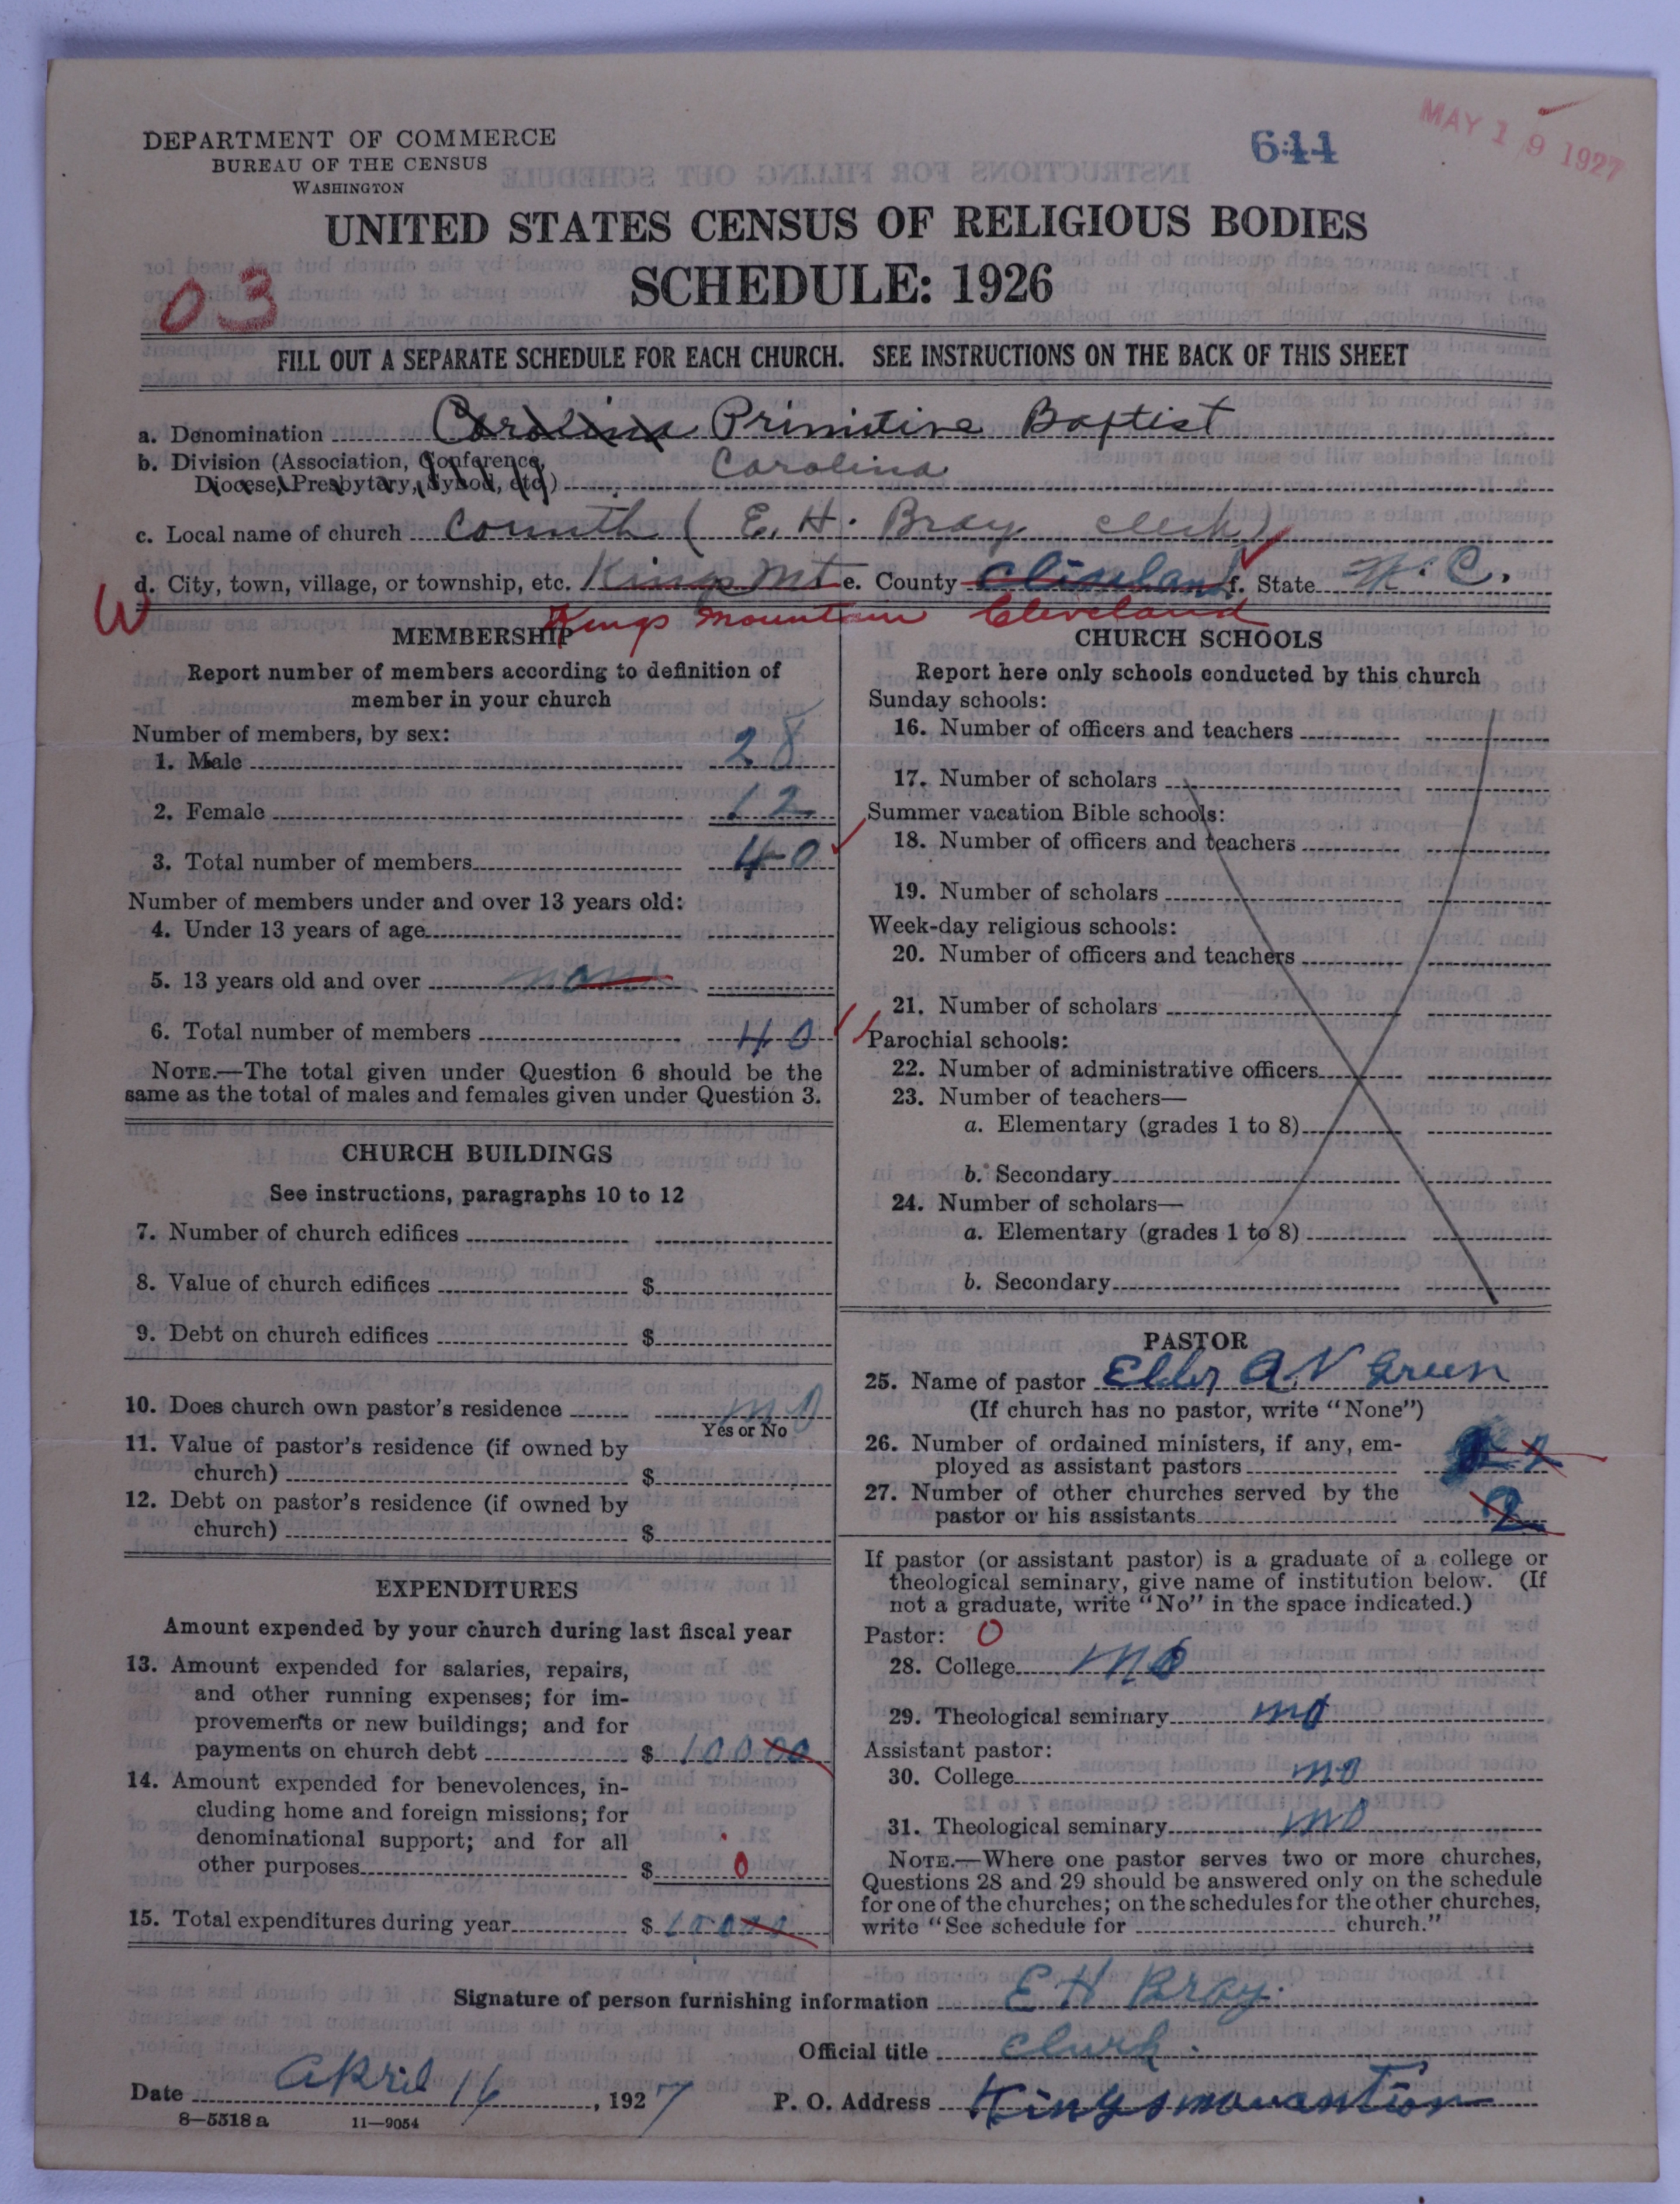 DEPARTMENT OF COMMERCE
BUREAU OF THE CENSUS
WASHINGTON
644
MAY 19 1927
UNITED STATES CENSUS OF RELIGIOUS BODIES
SCHEDULE: 1926
03
FILL OUT A SEPARATE SCHEDULE FOR EACH CHURCH. SEE INSTRUCTIONS ON THE BACK OF THIS SHEET
a. Denomination Carolina Primitive Baptist
b. Division (Association, Conference, Carolina
Diocese, Presbytery, Synod, etc.)
c. Local name of church (E. H. Bray clerk)
d. City, town, village, or township, etc. Kings Mt e. County f. State N. C.
W Kings Mountain Cleveland
MEMBERSHIP
Report number of members according to definition of
member in your church
Number of members, by sex:
1. Male 28
2. Female 12
3. Total number of members 40
Number of members under and over 13 years old:
4. Under 13 years of age
5. 13 years old and over
6. Total number of members 40
NOTE.—The total given under Question 6 should be the
same as the total of males and females given under Question 3.
CHURCH BUILDINGS
See instructions, paragraphs 10 to 12
7. Number of church edifices
8. Value of church edifices $
9. Debt on church edifices $
10. Does church own pastor's residence no
Yes or No
11. Value of pastor's residence (if owned by
church) $
12. Debt on pastor's residence (if owned by
church) $
EXPENDITURES
Amount expended by your church during last fiscal year
13. Amount expended for salaries, repairs,
and other running expenses; for im-
provements or new buildings; and for
payments on church debt $ 10000
14. Amount expended for benevolences, in-
cluding home and foreign missions; for
denominational support; and for all
other purposes $ 0
15. Total expenditures during year $ 10000
CHURCH SCHOOLS
Report here only schools conducted by this church
Sunday schools:
16. Number of officers and teachers
17. Number of scholars
Summer vacation Bible schools:
18. Number of officers and teachers
19. Number of scholars
Week-day religious schools:
20. Number of officers and teachers
21. Number of scholars
Parochial schools:
22. Number of administrative officers
23. Number of teachers—
a. Elementary (grades 1 to 8)
b. Secondary
24. Number of scholars—
a. Elementary (grades 1 to 8)
b. Secondary
PASTOR
25. Name of pastor Elder A. V. Green
(If church has no pastor, write "None")
26. Number of ordained ministers, if any, em-
ployed as assistant pastors
27. Number of other churches served by the
pastor or his assistants 2
If pastor (or assistant pastor) is a graduate of a college or
theological seminary, give name of institution below. (If
not a graduate, write "No" in the space indicated.)
Pastor: 0
28. College no
29. Theological seminary no
Assistant pastor:
30. College no
31. Theological seminary no
NOTE.—Where one pastor serves two or more churches,
Questions 28 and 29 should be answered only on the schedule
for one of the churches; on the schedules for the other churches,
write "See schedule for church."
Signature of person furnishing information E H Bray.
Official title clerk.
Date April 16, 1927 P. O. Address Kingsmountion
8—5518 a 11—9054